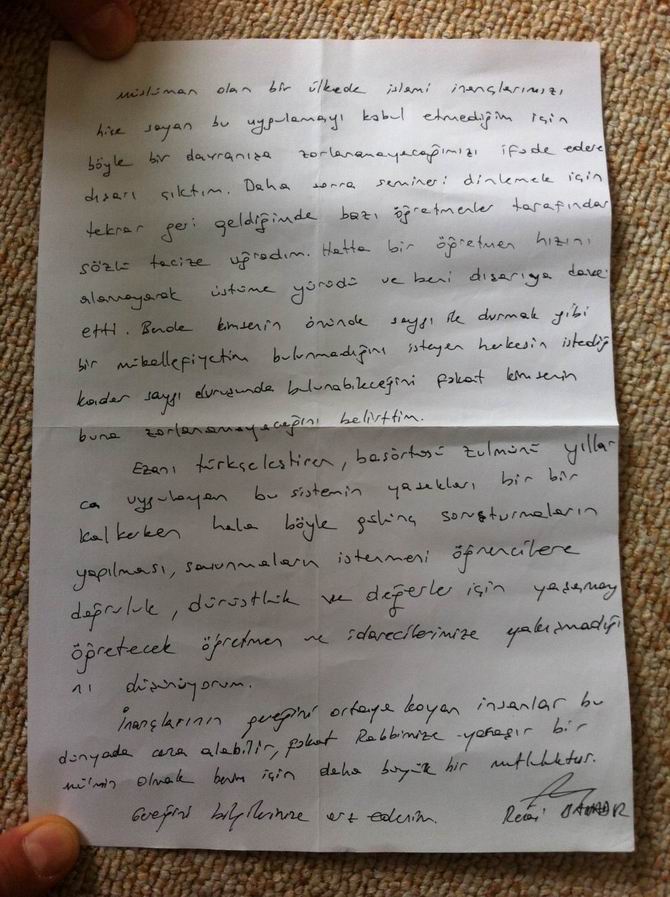 müslüman olan bir ülkede islami inançlarımızı
hiçe sayan bu uygulamayı kabul etmediğim için
böyle bir davranışa zorlanamayacağımızı ifade edere
dışarı çıktım. Daha sonra semineri dinlemek için
tekrar geri geldiğimde bazı öğretmenler tarafından
sözlü tacize uğradım. Hatta bir öğretmen hızını
alamayarak üstüme yürüdü ve beni dışarıya
etti. Bende kimsenin önünde saygı ile durmak gibi
bir mükellefiyetim bulunmadığını isteyen herkesin istediği
kadar saygı duruşunda bulunabileceğini fakat kimsenin
buna zorlanamayacağını belirttim.
Ezanı türkçeleştiren, başörtüsü zulmünü yıllar
ca uygulayan bu sistemin yasakları bir bir
kalkerken hala böyle soruşturmaların
yapılması, savunmaların istenmesi öğrencilere
doğruluk, dürüstlük ve değerler için yaşamay
öğretecek öğretmen ve idarecilerimize yakışmadığı
nı düşünüyorum.
İnançlarının gereğini ortaya koyan insanlar bu
dünyada ceza alabilir, fakat Rabbimize yaraşır bir
mü'min olmak benim için daha büyük bir mutluluktur.
Gereğini bilgilerinize arz ederim.